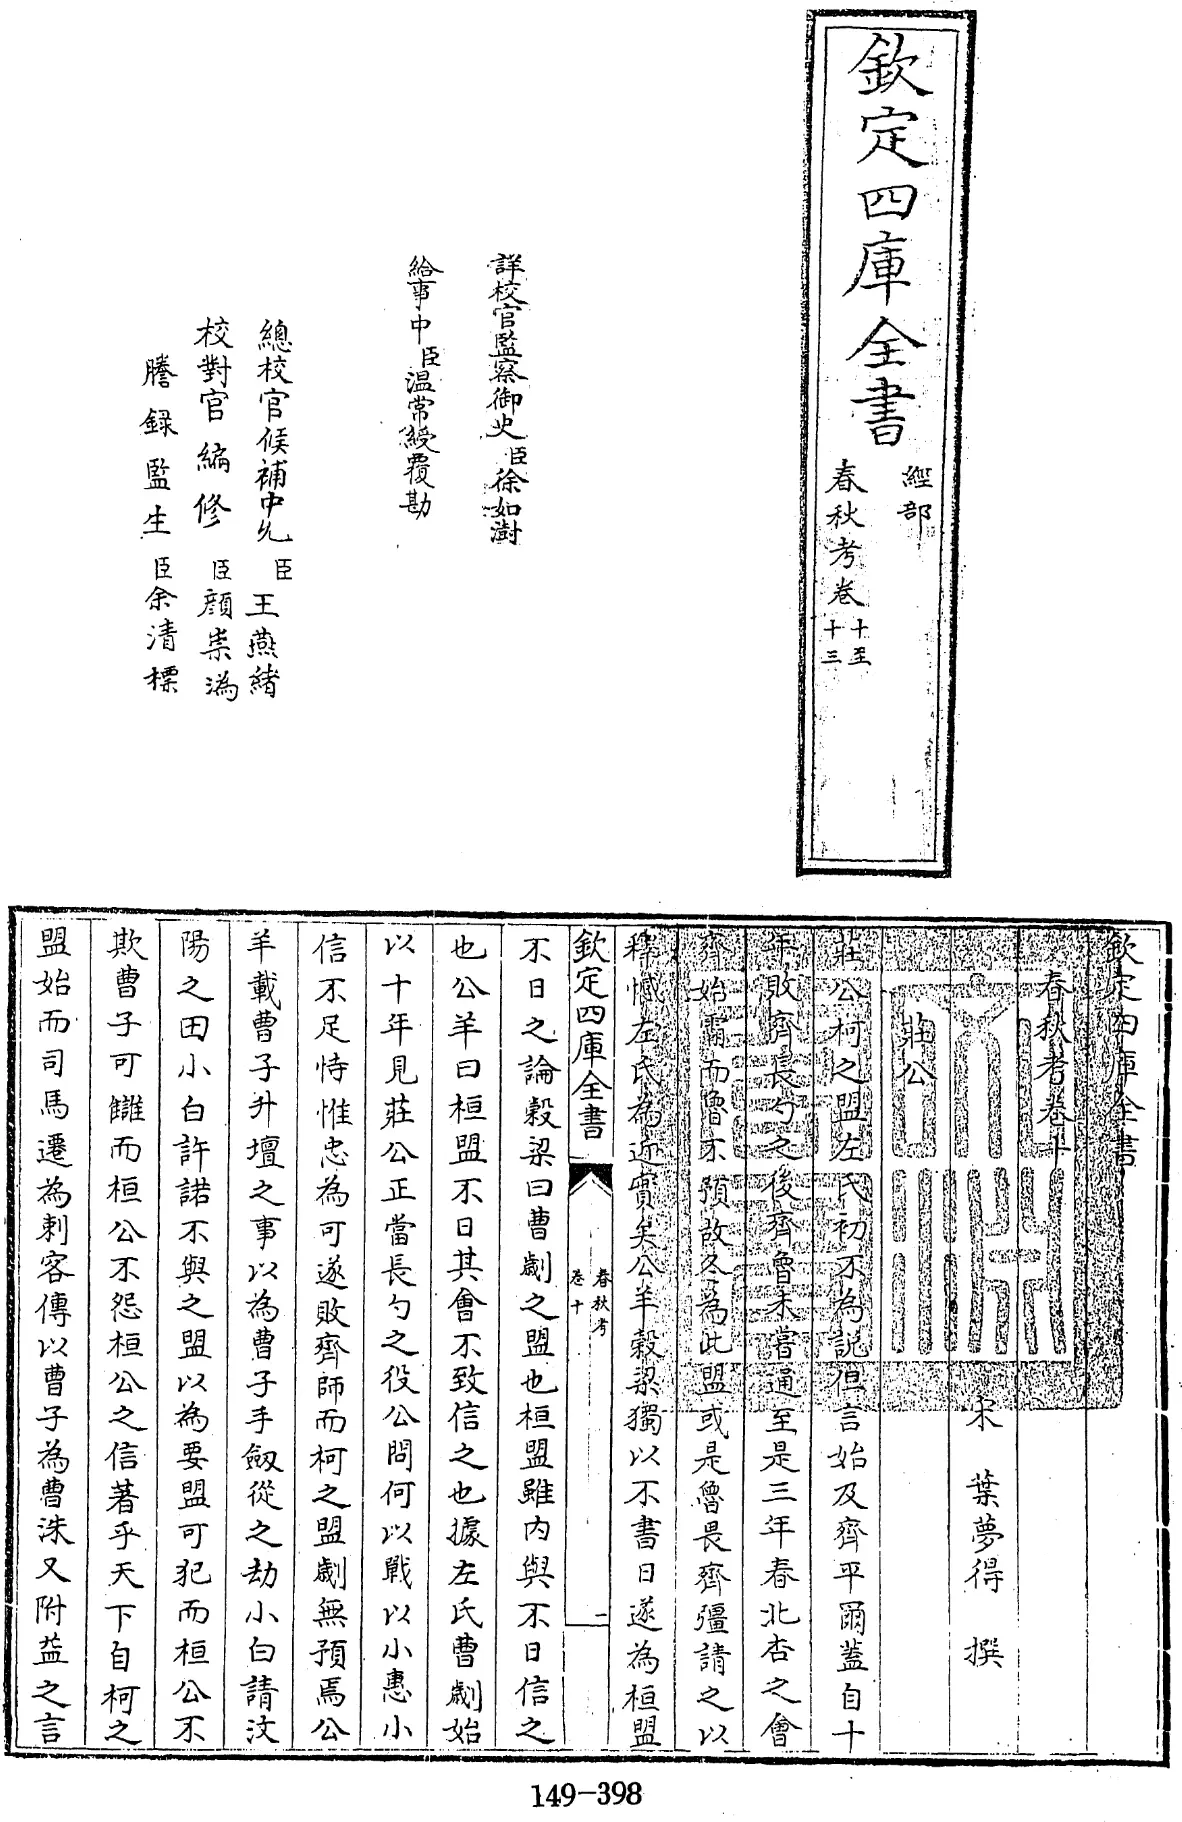 欽定四庫全書
經部
春秋考卷十至十三
詳校官監察御史臣徐如澍
給事中臣温常綬覆勘
總校官候補中允臣王燕緒
校對官編修臣顔崇溈
謄錄監生臣余清標
欽定四庫全書
春秋考卷十
宋 葉夢得 撰
莊公
莊公柯之盟左氏初不為説但言始及齊平爾蓋自十
年敗齊長勺之後齊魯未嘗通至是三年春北杏之會
齊始霸而魯不預故冬為此盟或是魯畏齊彊請之以
釋憾左氏為近實矣公羊穀梁獨以不書日遂為桓盟
欽定四庫全書
春秋考
卷十
二
不日之論穀梁曰曹劌之盟也桓盟雖内與不日信之
也公羊曰桓盟不日其會不致信之也據左氏曹劌始
以十年見莊公正當長勺之役公問何以戰以小惠小
信不足恃惟忠為可遂敗齊師而柯之盟劌無預焉公
羊載曹子升壇之事以為曹子手劔從之劫小白請汶
陽之田小白許諾不與之盟以為要盟可犯而桓公不
欺曹子可讎而桓公不怨桓公之信著乎天下自柯之
盟始而司馬遷為刺客傳以曹子為曹洙又附益之言
149-398